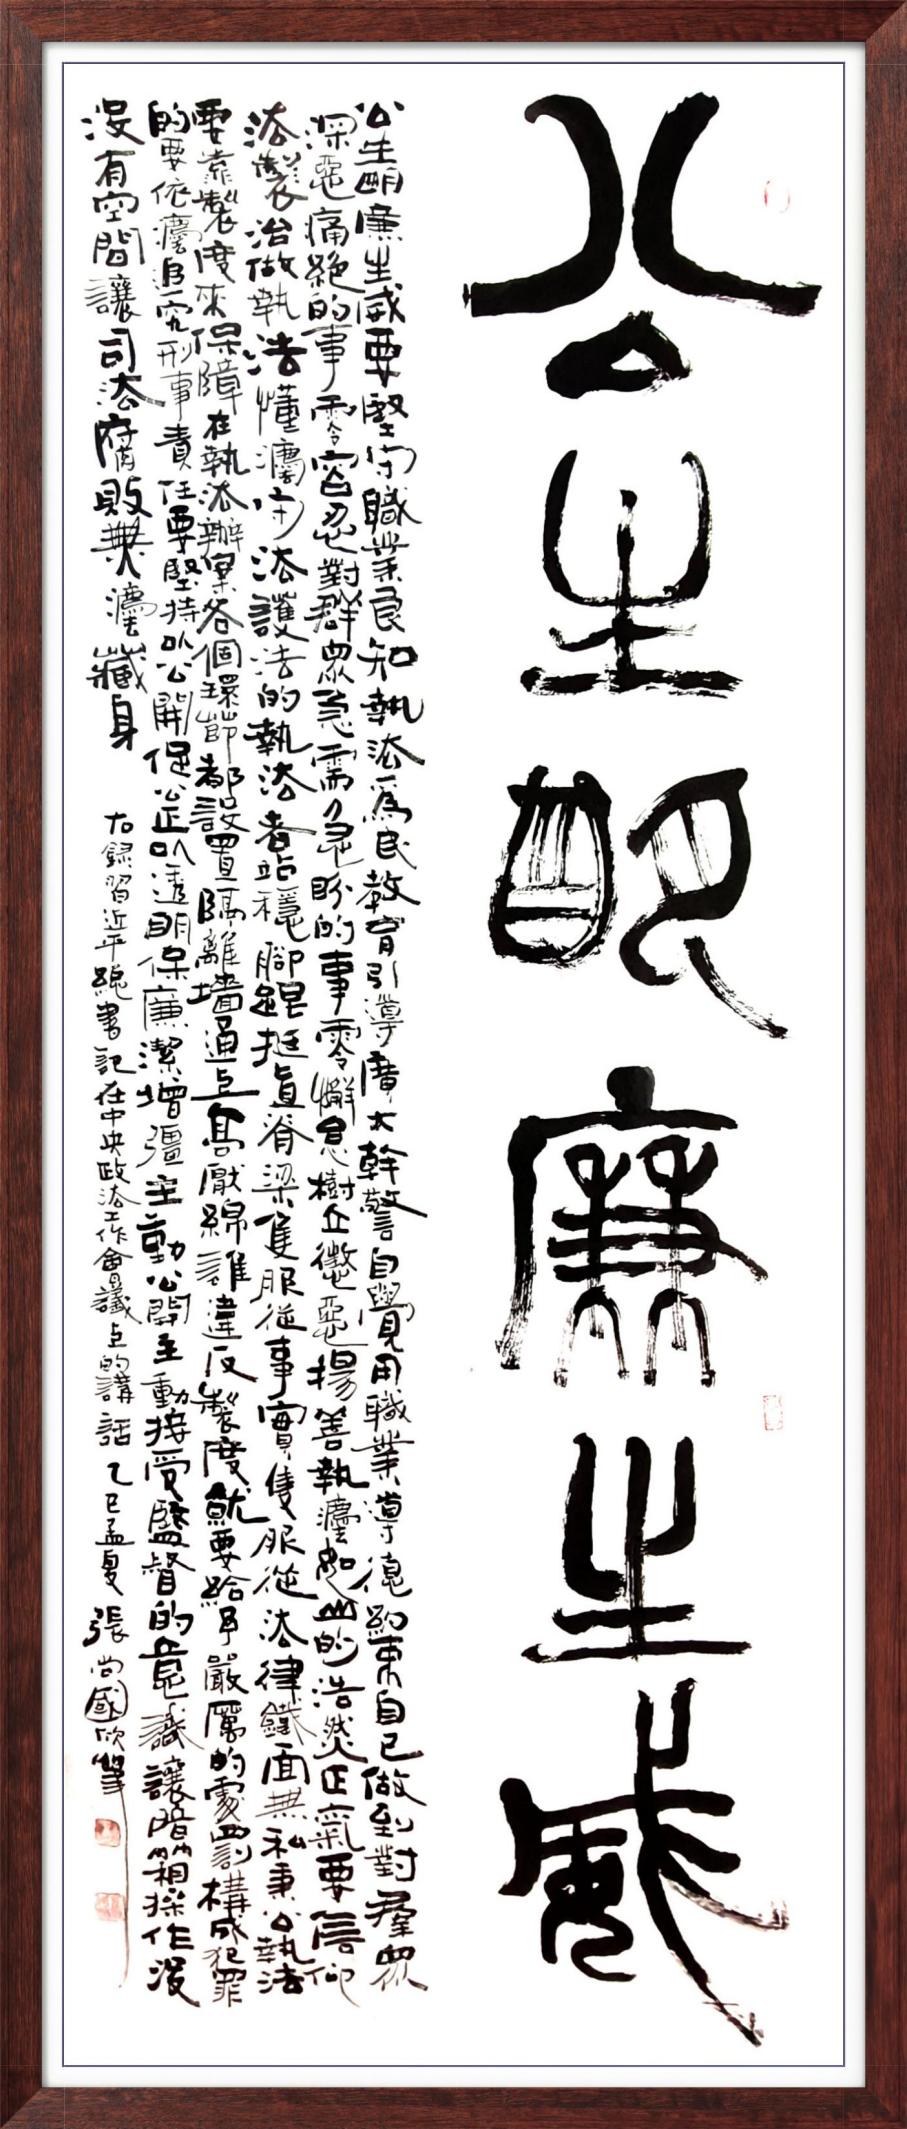 公生明廉生威
公生朙廉生威要堅守職業良知執法為民教育引導廣大幹警自覺用職業導德約束自己做到對群眾
深惡痛絕的事零容忍對群眾急需急盼的事零懈怠樹立懲惡揚善執灋如山的浩然正氣要信仰
法製治做執法懂灋守法護法的執法者站穩腳跟挺直脊梁隻服從事實隻服從法律鐵面無私秉公執法
要靠製度來保障在執法辦案各個環節都設置隔離墻通上高厭綿誰違反製度就要給予嚴厲的處罰構成犯罪
的要依灋追究刑事責任要堅持以公開促公正以透明保廉潔增彊主動公開主動接受監督的意識讓暗箱操作沒
沒有空間讓司法腐敗無灋藏身 右錄習近平總書記在中央政法工作會議上的講話 乙巳孟夏 張尚國欣筆